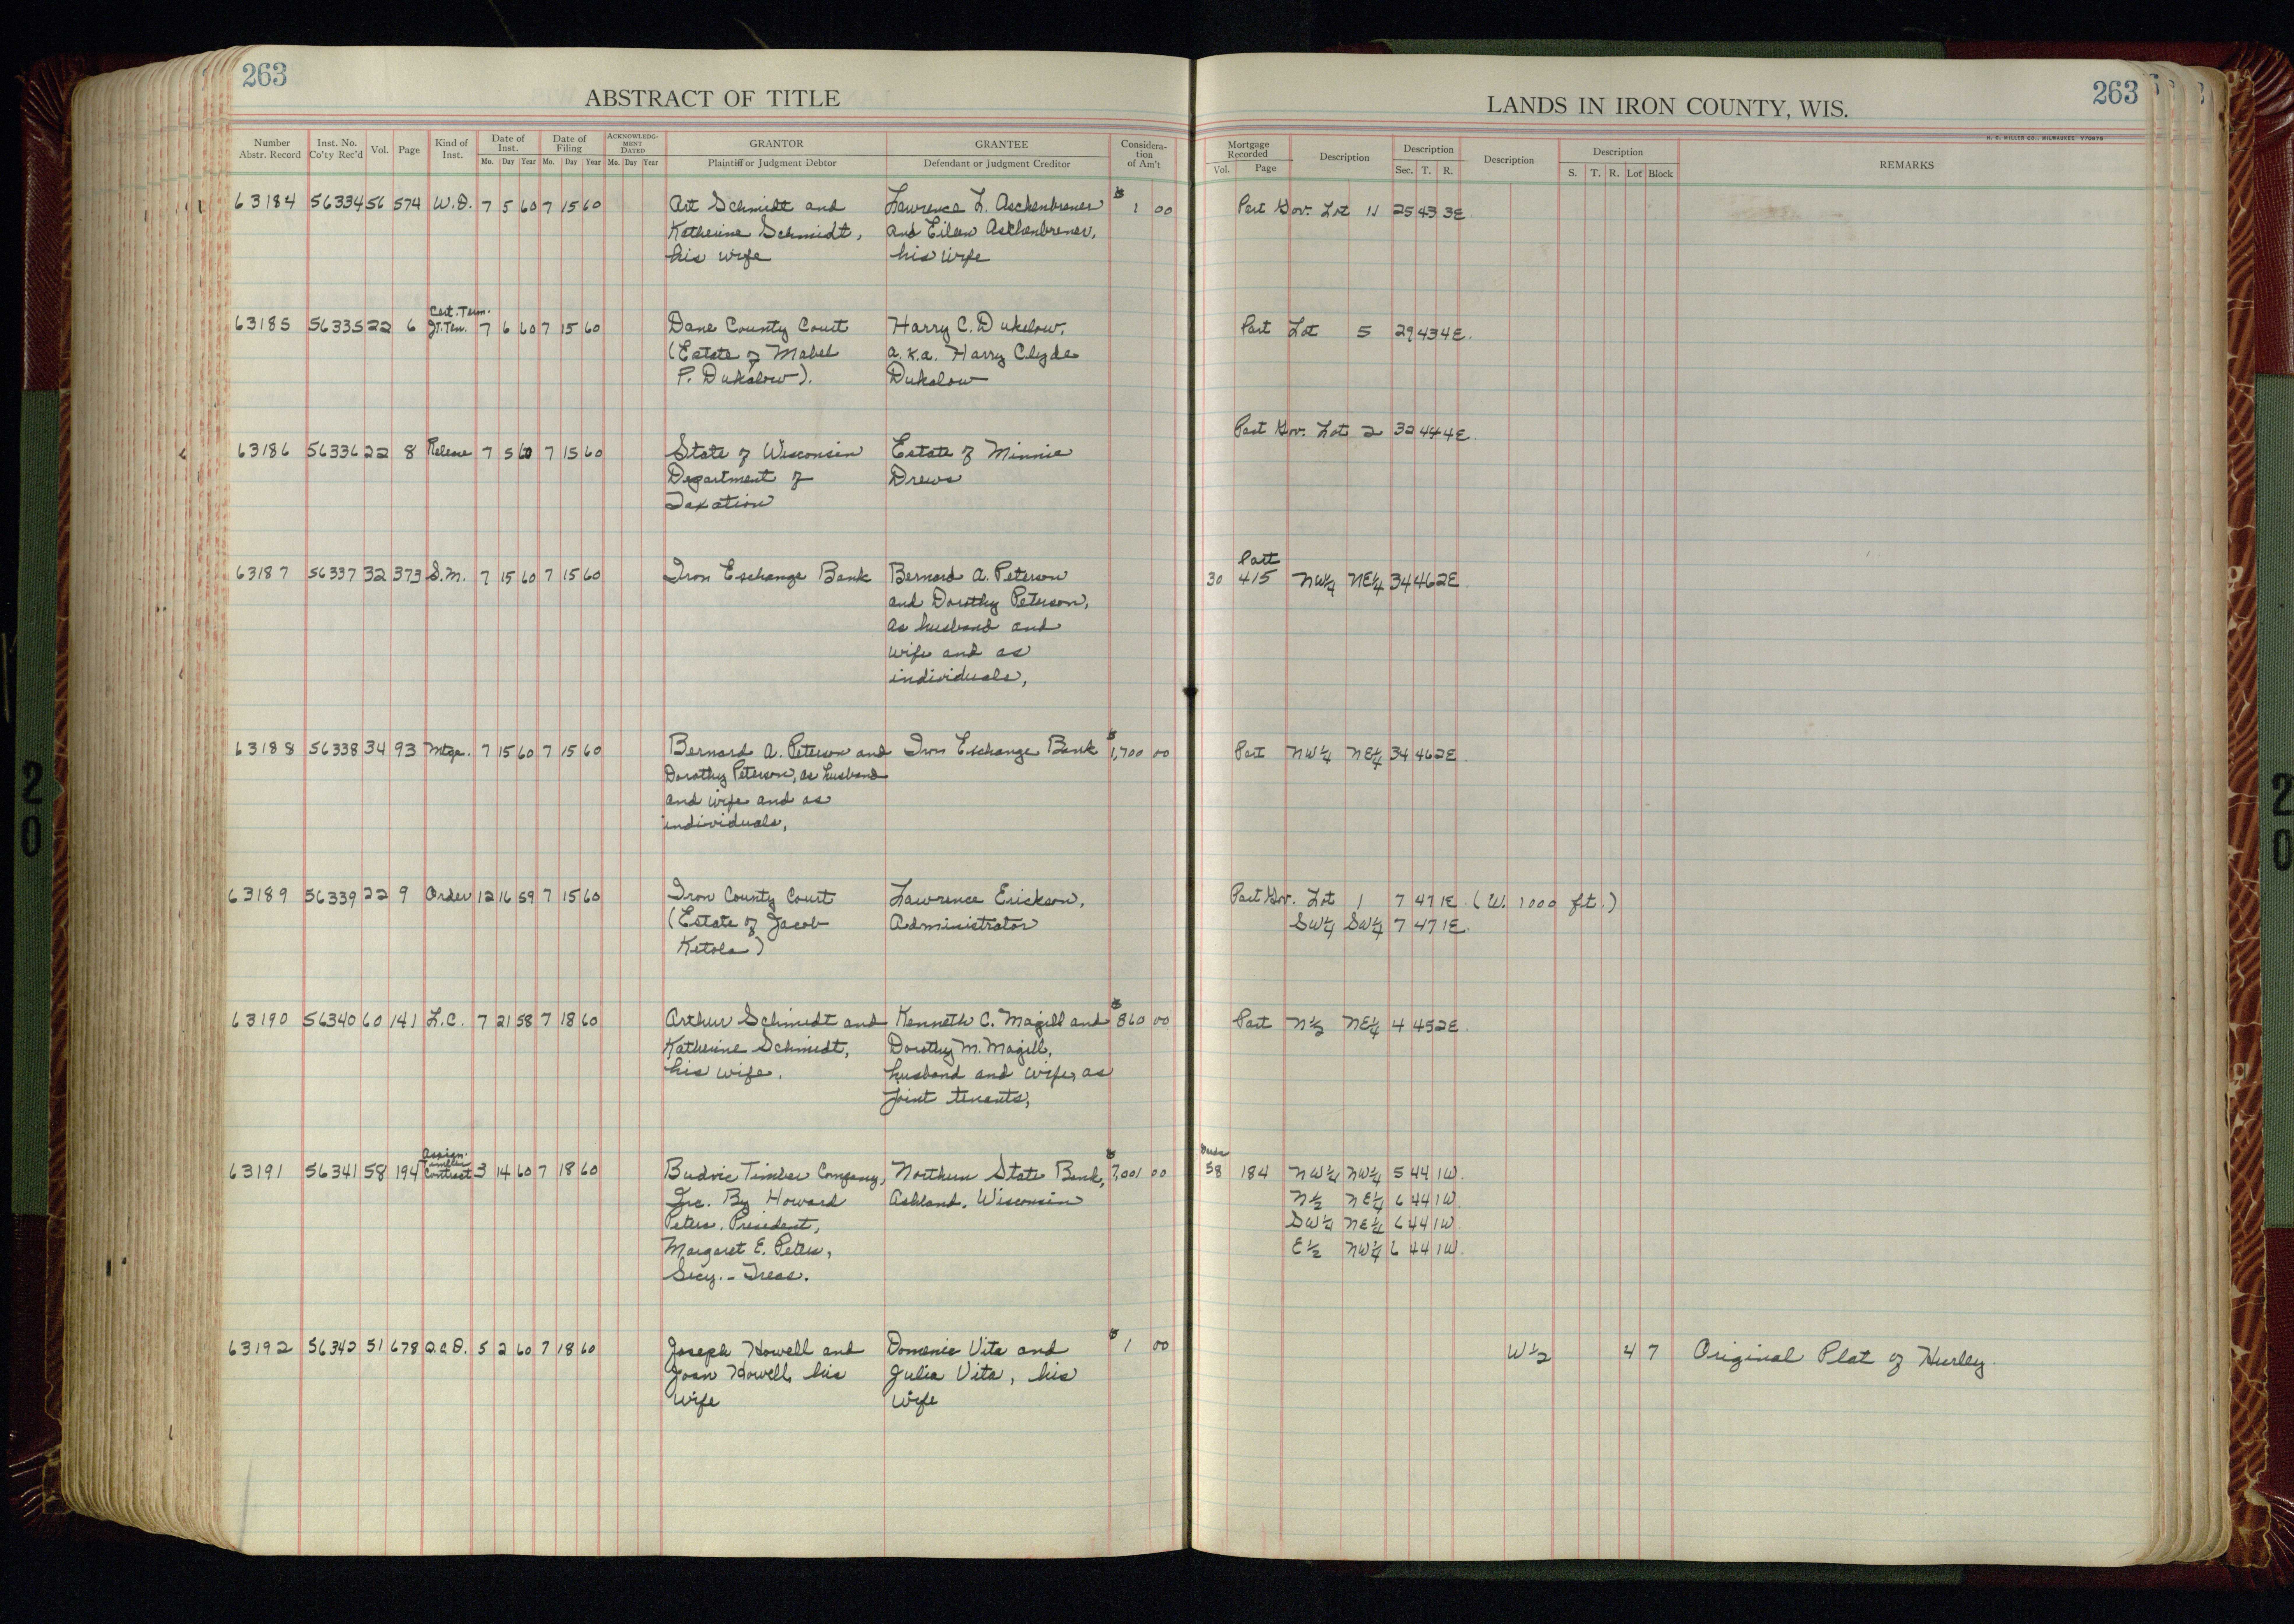 263
ABSTRACT OF TITLE
Number Abstr. Record Inst. No. Co'ty Rec'd Vol. Page Kind of Inst. Date of Inst. Mo. Day Year Date of Filing Mo. Day Year ACKNOWLEDGMENT DATED Mo. Day Year GRANTOR Plaintiff or Judgment Debtor GRANTEE Defendant or Judgment Creditor Consideration of Am't
63184 56334 56 574 W.D. 7 5 60 7 15 60 Art Schmidt and Lawrence L. Aschenbrener $1 00
Katherine Schmidt, and Eileen Aschenbrener,
his wife his wife
Cert. Term.
63185 56335 22 6 Jt. Ten. 7 6 60 7 15 60 Dane County Court Harry C. Dukelow,
(Estate of Mabel a.k.a. Harry Clyde
P. Dukelow). Dukelow
63186 56336 22 8 Release 7 5 60 7 15 60 State of Wisconsin Estate of Minnie
Department of Drews
Taxation
63187 56337 32 373 S.M. 7 15 60 7 15 60 Iron Exchange Bank Bernard A. Peterson
and Dorothy Peterson,
as husband and
wife and as
individuals,
63188 56338 34 93 Mtge. 7 15 60 7 15 60 Bernard A. Peterson and Iron Exchange Bank $1,700 00
Dorothy Peterson, as husband
and wife and as
individuals,
63189 56339 22 9 Order 12 16 59 7 15 60 Iron County Court Lawrence Erickson,
(Estate of Jacob Administrator
Ketola)
63190 56340 60 141 L.C. 7 21 58 7 18 60 Arthur Schmidt and Kenneth C. Magill and $860 00
Katherine Schmidt, Dorothy M. Magill,
his wife. husband and wife, as
joint tenants,
Assign.
Timber
63191 56341 58 194 Contract 3 14 60 7 18 60 Budvic Timber Company, Northern State Bank, $7,001 00
Inc. By Howard Ashland, Wisconsin
Peters, President,
Margaret E. Peters,
Secy. - Treas.
63192 56342 51 678 Q.C.D. 5 2 60 7 18 60 Joseph Howell and Domenic Vita and $1 00
Joan Howell, his Julia Vita, his
wife wife
263
LANDS IN IRON COUNTY, WIS.
H. C. MILLER CO., MILWAUKEE Y70979
Mortgage Recorded Vol. Page Description Description Sec. T. R. Description Description S. T. R. Lot Block REMARKS
Part Gov. Lot 11 25 43 3E
Part Lot 5 29 43 4E.
Part Gov. Lot 2 32 44 4E.
Part
30 415 NW¼ NE¼ 34 46 2E
Part NW¼ NE¼ 34 46 2E
Part Gov. Lot 1 7 47 1E. (W. 1000 ft.)
SW¼ SW¼ 7 47 1E.
Part N½ NE¼ 4 45 2E.
Deeds
58 184 NW¼ NW¼ 5 44 1W.
N½ NE¼ 6 44 1W.
SW¼ NE¼ 6 44 1W.
E½ NW¼ 6 44 1W.
W½ 4 7 Original Plat of Hurley.
20
20